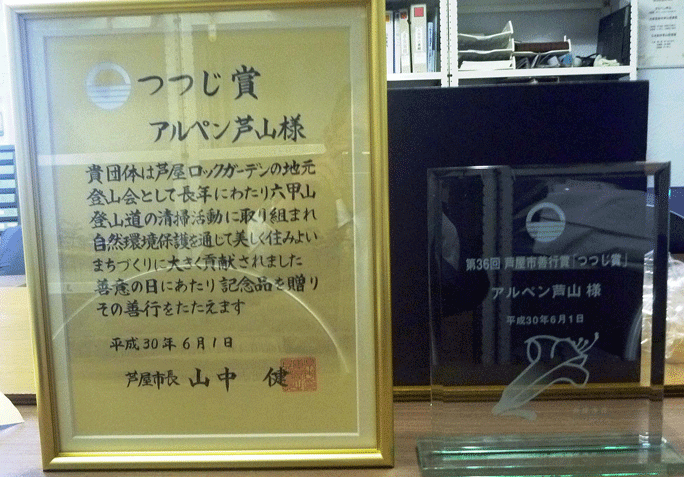 つつじ賞
アルペン芦山様
貴団体は芦屋ロックガーデンの地元
登山会として長年にわたり六甲山
登山道の清掃活動に取り組まれ
自然環境保護を通して美しく住みよい
まちづくりに大きく貢献されました
善意の日にあたり記念品を贈り
その善行をたたえます
平成30年6月1日
芦屋市長 山中 健
第36回 芦屋市善行賞「つつじ賞」
アルペン芦山 様
平成30年6月1日